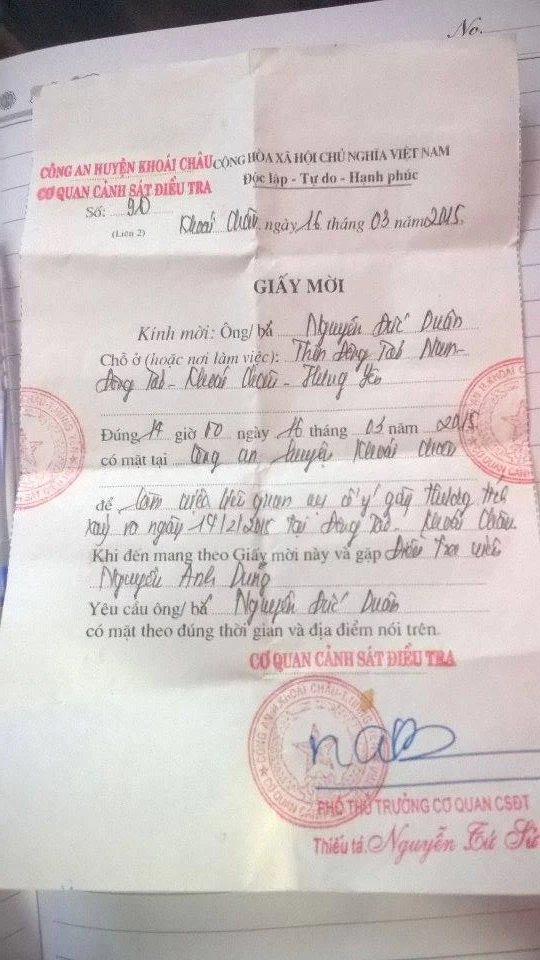 No.
CÔNG AN HUYỆN KHOÁI CHÂU CỘNG HÒA XÃ HỘI CHỦ NGHĨA VIỆT NAM
CƠ QUAN CẢNH SÁT ĐIỀU TRA Độc lập - Tự do - Hạnh phúc
Số: 90
(Liên 2)
Khoái Châu, ngày 16 tháng 03 năm 2015.
GIẤY MỜI
Kính mời: Ông/ bà Nguyễn Đức Duân
Chỗ ở (hoặc nơi làm việc): Thôn Đông Tảo Nam-
Đông Tảo - Khoái Châu - Hưng Yên
Đúng 14 giờ 00 ngày 16 tháng 03 năm 2015.
có mặt tại Công an huyện Khoái Châu
để làm việc liên quan vụ cố ý gây thương tích
xảy ra ngày 19/2/2015 tại Đông Tảo - Khoái Châu.
Khi đến mang theo Giấy mời này và gặp Điều tra viên
Nguyễn Anh Dũng
Yêu cầu ông/ bà Nguyễn Đức Duân
có mặt theo đúng thời gian và địa điểm nói trên.
CƠ QUAN CẢNH SÁT ĐIỀU TRA
PHÓ THỦ TRƯỞNG CƠ QUAN CSĐT
Thiếu tá. Nguyễn